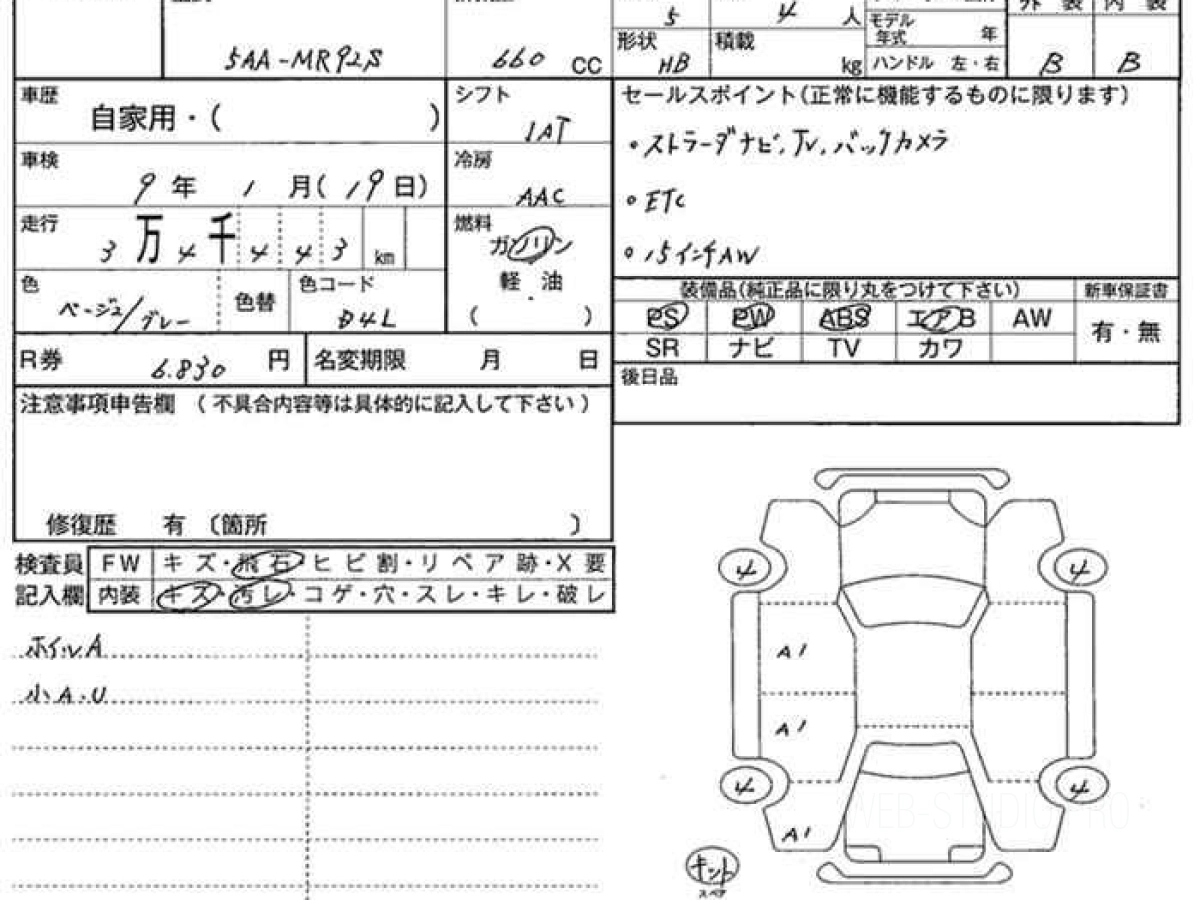 5 4 人 モデル年式 年 外装 内装
5AA-MR92S 660 CC 形状 HB 積載 kg ハンドル 左・右 B B
車歴 自家用・( ) シフト IAT セールスポイント(正常に機能するものに限ります)
。ストラーダナビ,TV,バックカメラ
車検 9年 1月(19日) 冷房 AAC
。ETC
走行 3万4千443km 燃料 ガソリン
。15インチAW
軽油
( )
色 ベージュ/グレー 色替 色コード B4L
装備品(純正品に限り丸をつけて下さい) 新車保証書
PS PW ABS エアB AW 有・無
SR ナビ TV カワ
R券 6.830 円 名変期限 月 日
後日品
注意事項申告欄 (不具合内容等は具体的に記入して下さい)
修復歴 有 〔箇所 〕
検査員 FW キズ・飛石・ヒビ割・リペア跡・X要
記入欄 内装 キズ・汚レ・コゲ・穴・スレ・キレ・破レ
ホイルA
小A.U
4 4
A1
A1
4 4
A1
WEB-STUDIO.PRO
キント
スペア